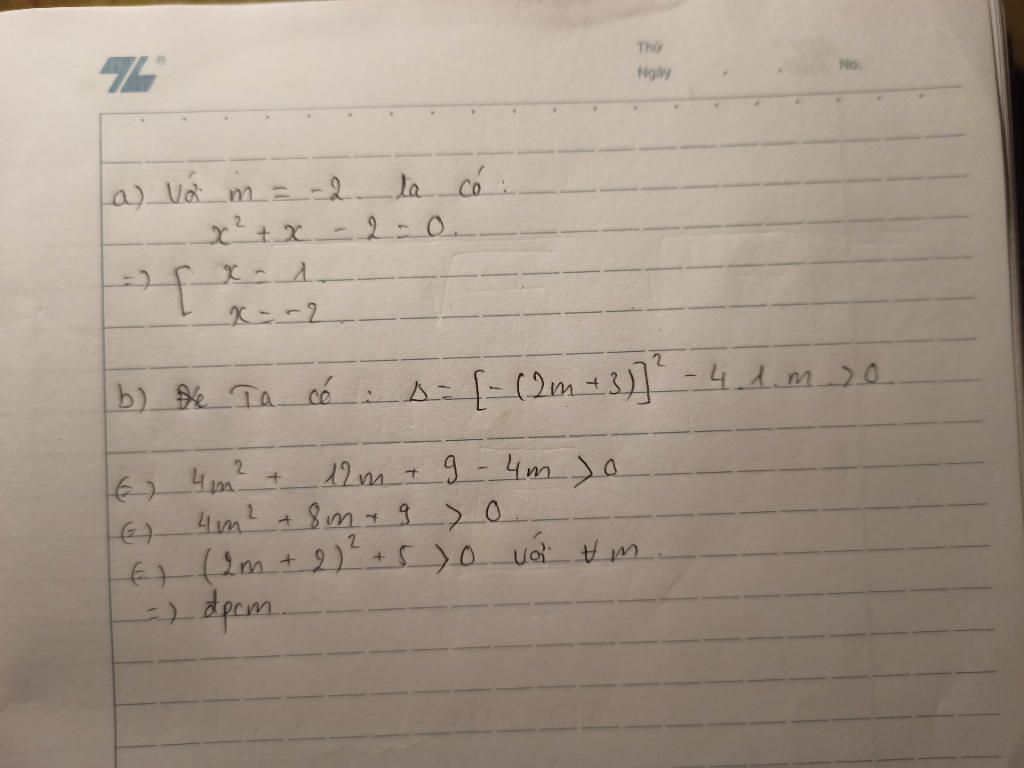 Thứ
Ngày . . No.
a) Với m = -2 ta có :
x² + x - 2 = 0.
=) [ x = 1.
x = -2
b) Ta có : Δ = [-(2m + 3)]² - 4.1.m > 0
(=) 4m² + 12m + 9 - 4m > 0
(=) 4m² + 8m + 9 > 0.
(=) (2m + 2)² + 5 > 0 với ∀ m.
=) đpcm.